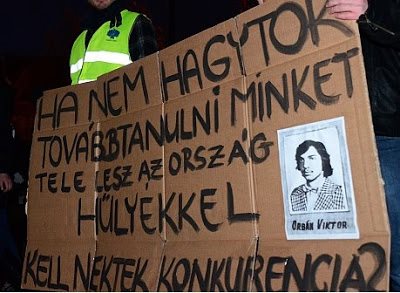 HA NEM HAGYTOK
TOVÁBBTANULNI MINKET
TELE LESZ AZ ORSZÁG
HÜLYÉKKEL
KELL NEKTEK KONKURENCIA?
ORBÁN VIKTOR